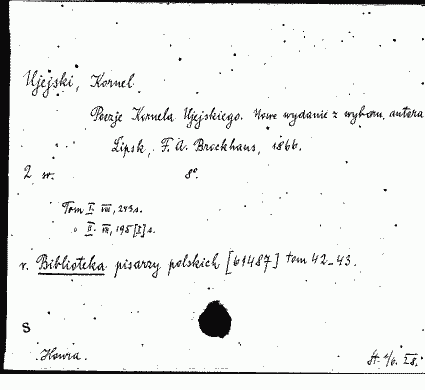 Ujejski, Kornel
Poezje Kornela Ujejskiego. Nowe wydanie z wyboru autora
Lipsk, F. A. Brockhaus, 1866.
2 w. 8º.
Tom I. VIII, 243 s.
" II. VI, 195 [1] s.
v. Biblioteka pisarzy polskich [61487] tom 42-43.
S